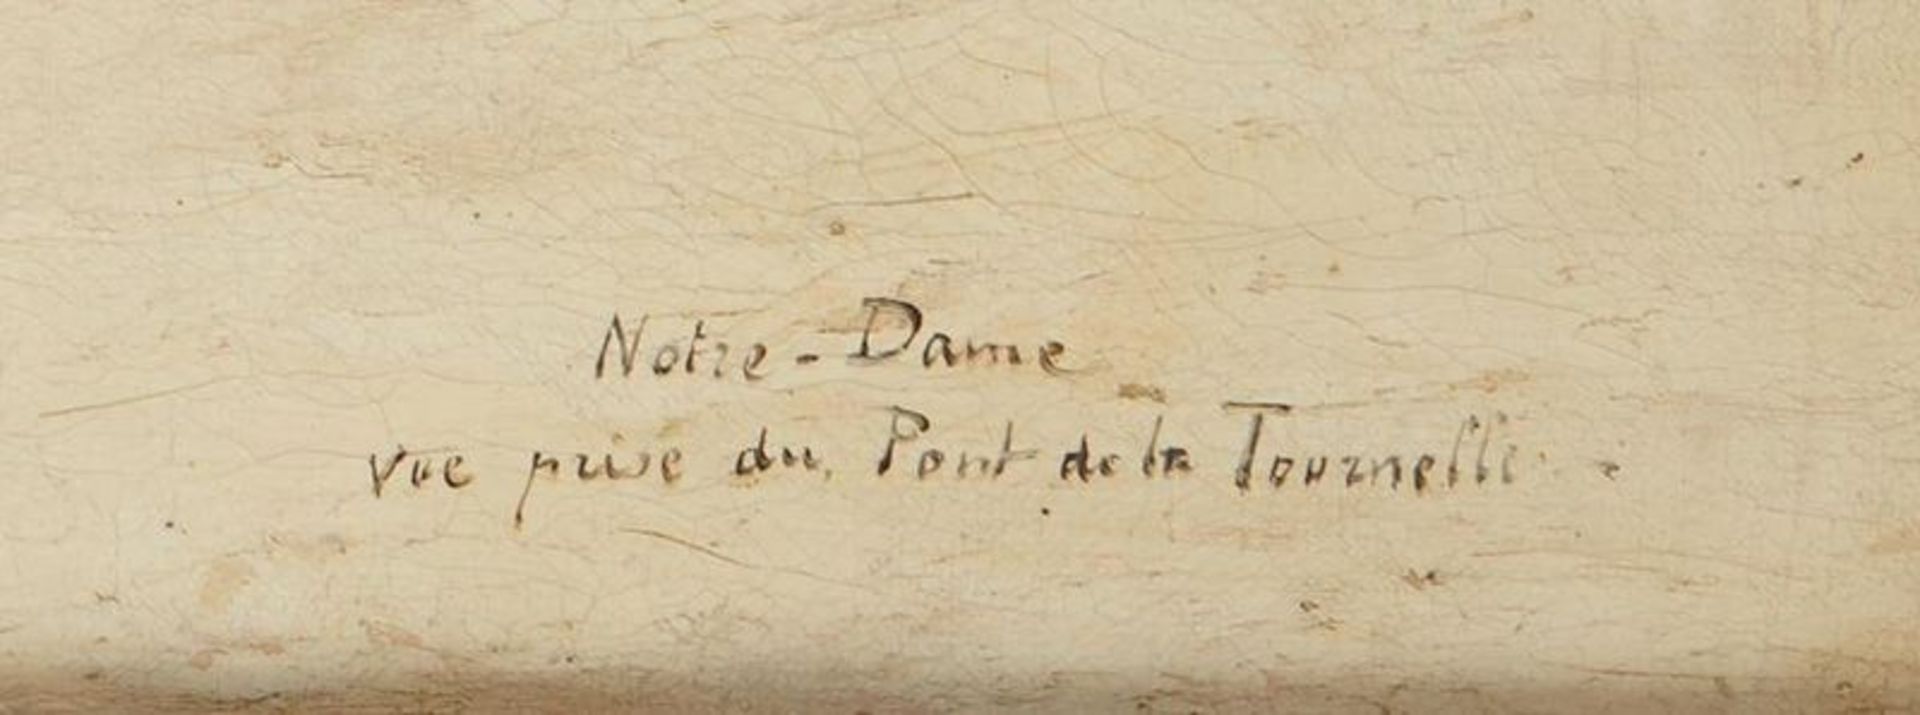 Notre-Dame
vue prise du Pont de la Tournelle